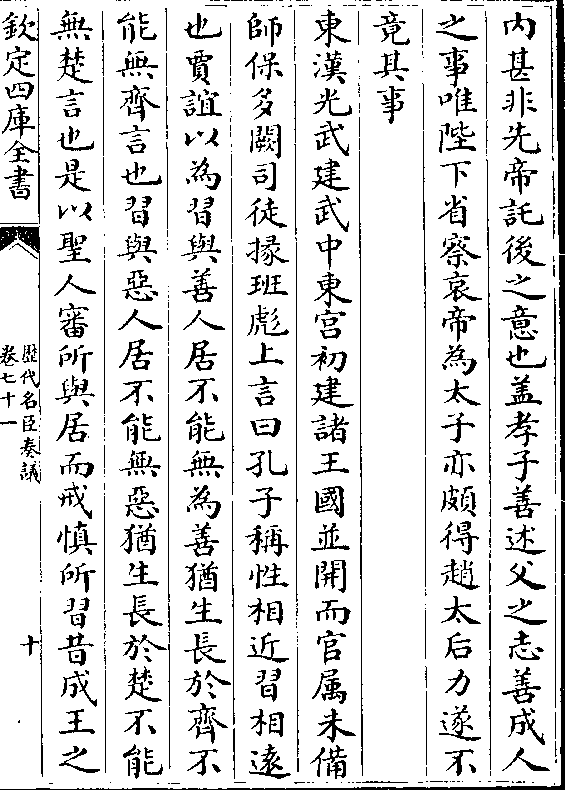 内甚非先帝託後之意也盖孝子善述父之志善成人
之事唯陛下省察哀帝為太子亦頗得趙太后力遂不
竟其事
東漢光武建武中東宫初建諸王國並開而官属未備
師保多闕司徒掾班彪上言曰孔子稱性相近習相逺
也賈誼以為習與善人居不能無為善猶生長於齊不
能無齊言也習與惡人居不能無惡猶生長於楚不能
無楚言也是以聖人審所與居而戒慎所習昔成王之
欽定四庫全書
歴代名臣奏議
卷七十一
十